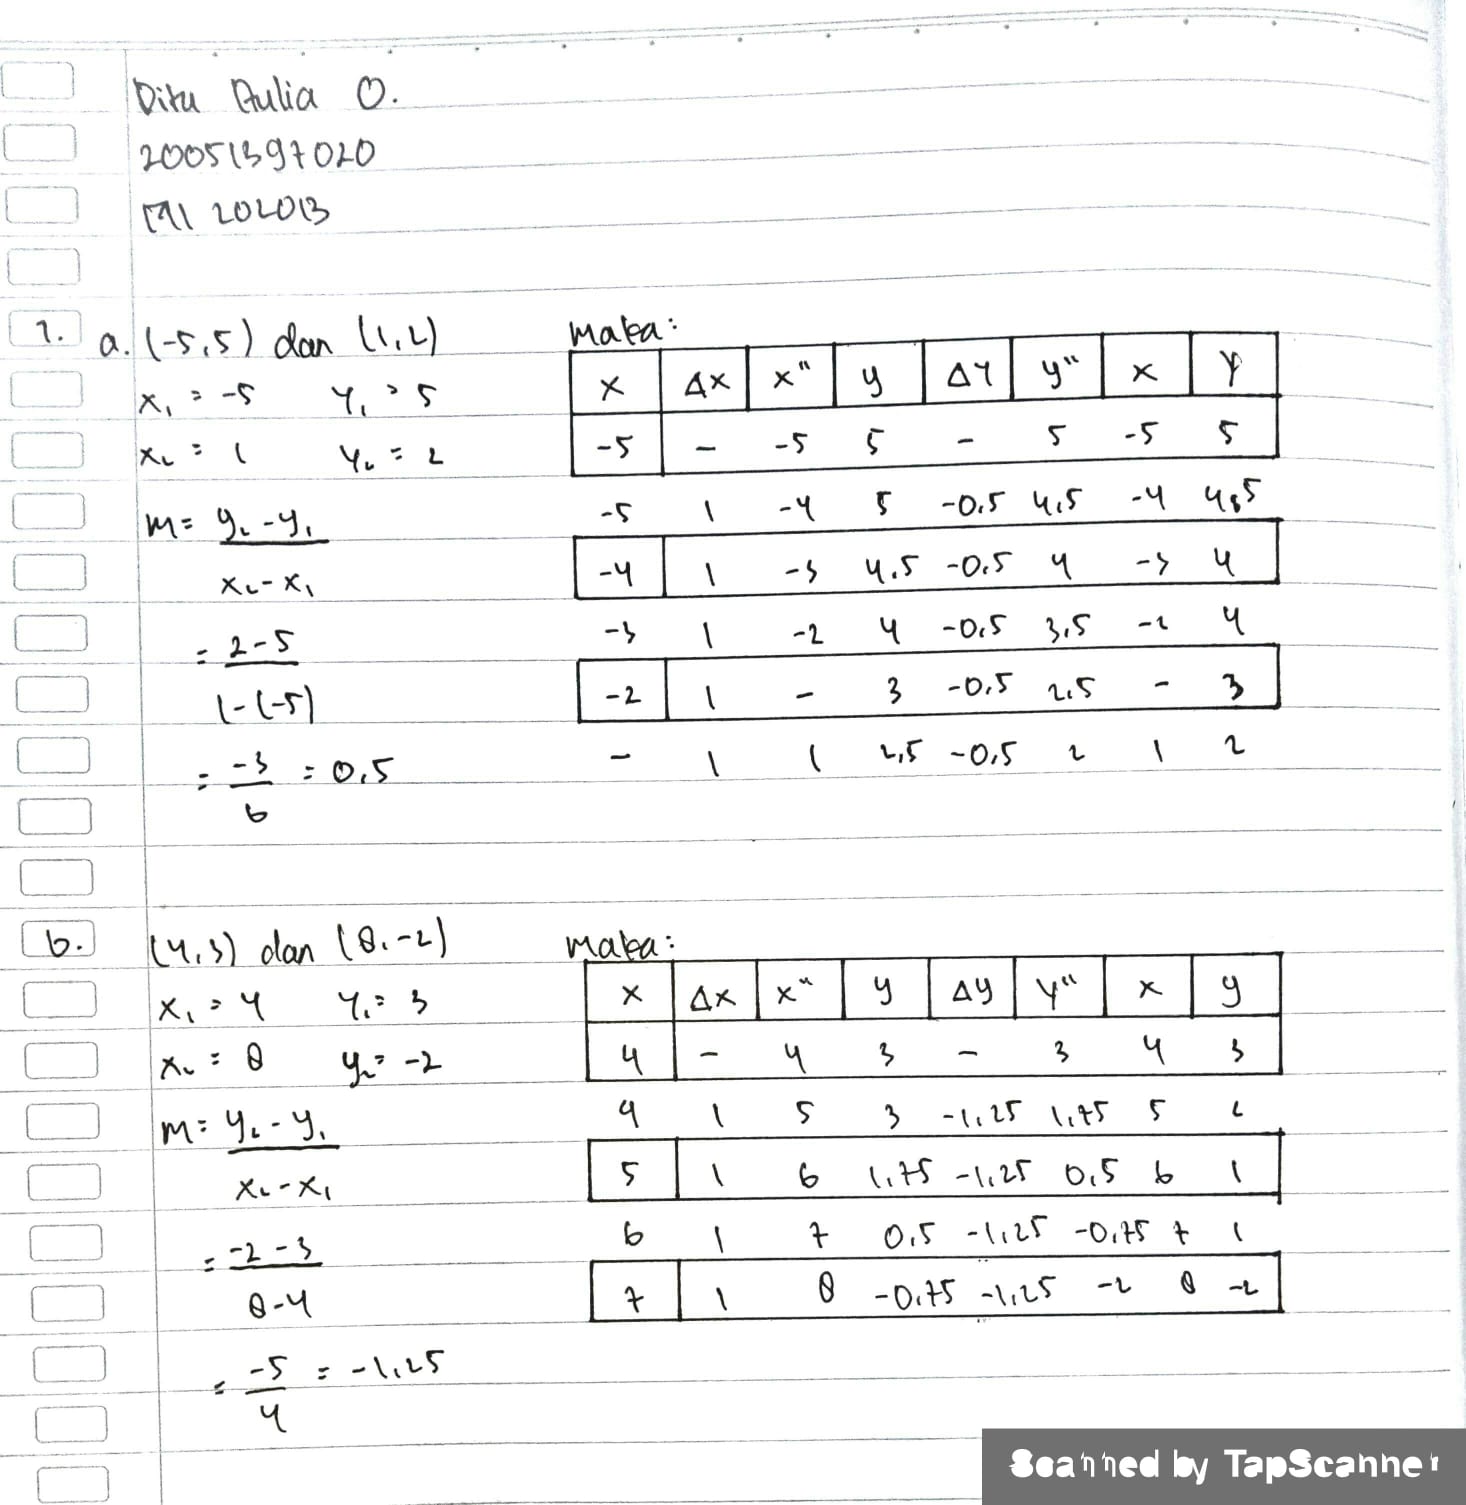 Dita Aulia O.
20051397020
MI 2020B
1. a. (-5,5) dan (1,2)
x₁ = -5 y₁ = 5
x₂ = 1 y₂ = 2
m = y₂ - y₁
x₂ - x₁
= 2 - 5
1 - (-5)
= -3 = 0,5
6
Maka:
x Δx x" y Δy y" x y
-5 - -5 5 - 5 -5 5
-5 1 -4 5 -0,5 4,5 -4 4,5
-4 1 -3 4,5 -0,5 4 -3 4
-3 1 -2 4 -0,5 3,5 -2 4
-2 1 - 3 -0,5 2,5 - 3
- 1 1 2,5 -0,5 2 1 2
b. (4,3) dan (8,-2)
x₁ = 4 y₁ = 3
x₂ = 8 y₂ = -2
m = y₂ - y₁
x₂ - x₁
= -2 - 3
8 - 4
= -5 = -1,25
4
Maka:
x Δx x" y Δy y" x y
4 - 4 3 - 3 4 3
4 1 5 3 -1,25 1,75 5 2
5 1 6 1,75 -1,25 0,5 6 1
6 1 7 0,5 -1,25 -0,75 7 1
7 1 8 -0,75 -1,25 -2 8 -2
Scanned by TapScanner